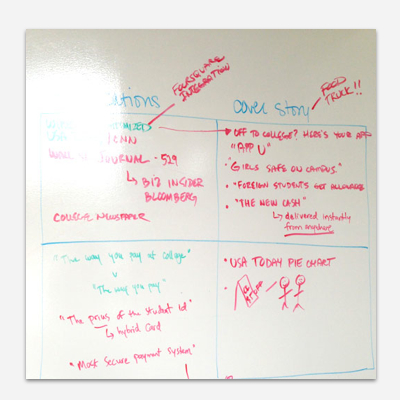 FOURSQUARE
INTEGRATION
FOOD
TRUCK!!
cover story
JOURNAL · 529
↳ BIZ INSIDER
BLOOMBERG
COLLEGE NEWSPAPER
OFF TO COLLEGE? HERE'S YOUR APP
"APP U"
"GIRLS SAFE ON CAMPUS."
• "FOREIGN STUDENTS GET ALLOWANCE
• "THE NEW CASH"
↳ delivered instantly
from anywhere
"The way you pay at college"
"The way you pay"
"The prius of the student Id"
↳ hybrid card
"Most secure payment system"
• USA TODAY PIE CHART